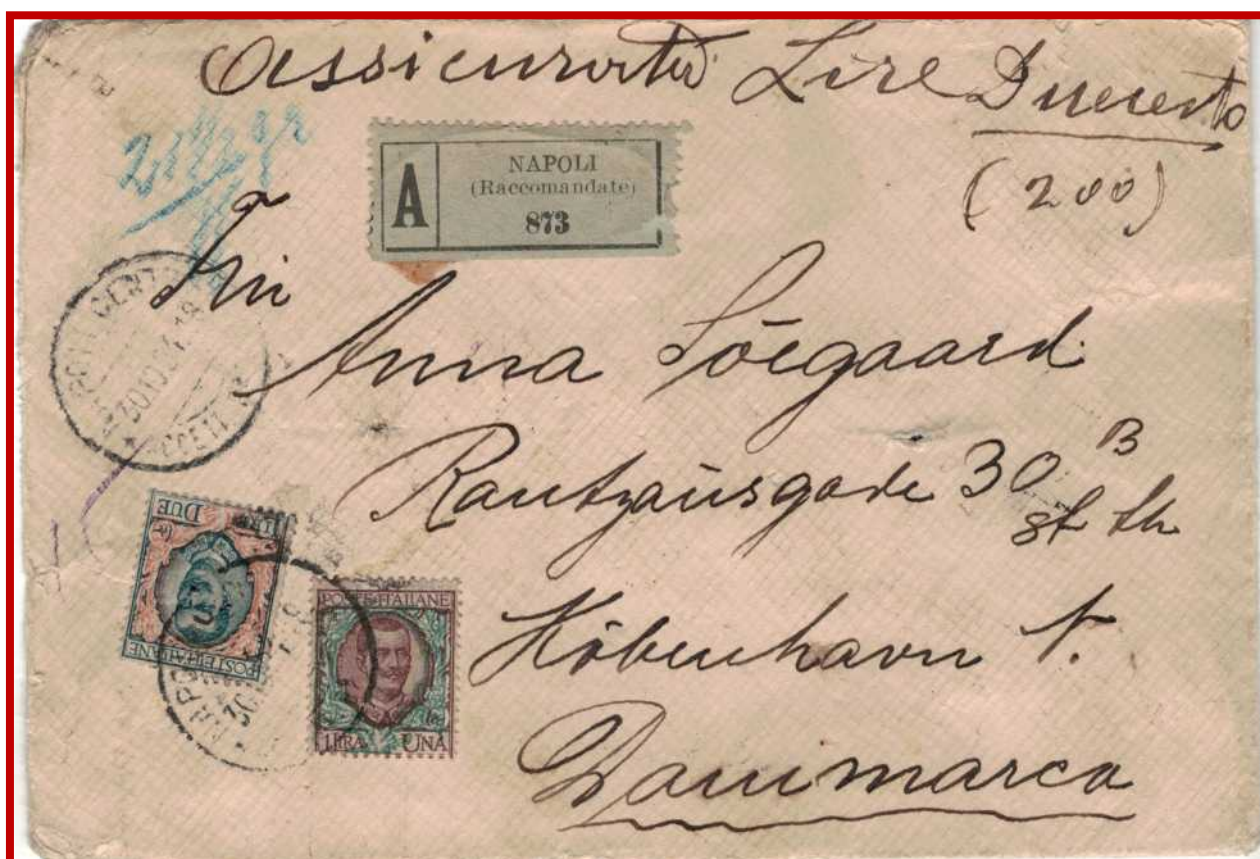 Assicurata Lire Duecento
(200)
21 1/2 gr
A
NAPOLI
(Raccomandate)
873
Anna Söegaard
Rantzausgade 30 B
st th
København N.
Danimarca
LIRE DUE
POSTE ITALIANE
POSTE ITALIANE
LIRA UNA